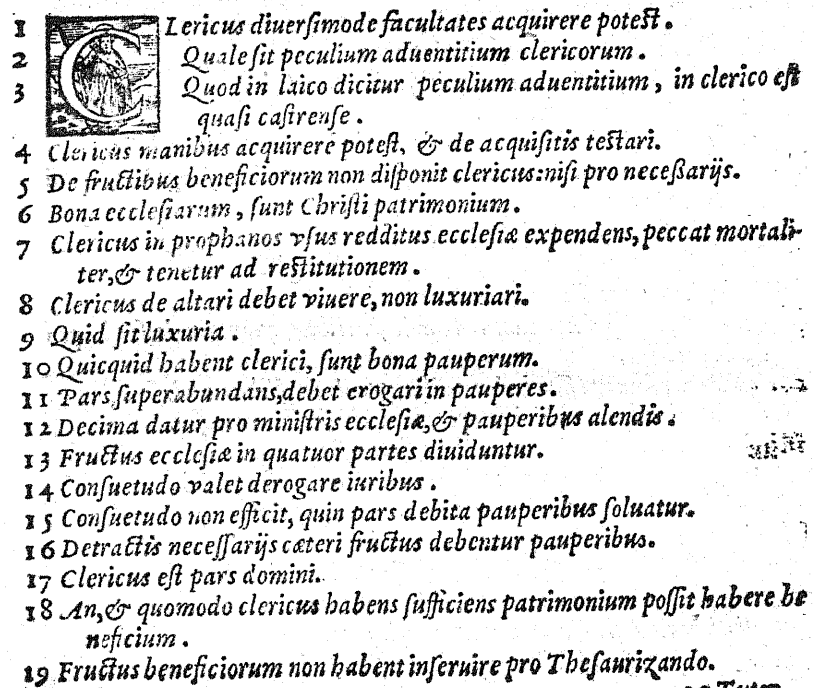 1 CLericus diuerſimode facultates acquirere poteſt.
2 Quale ſit peculium aduentitium clericorum.
3 Quod in laico dicitur peculium aduentitium, in clerico eſt
quaſi caſtrenſe.
4 Clericus manibus acquirere poteſt, & de acquiſitis teſtari.
5 De fructibus beneficiorum non diſponit clericus: niſi pro neceßarijs.
6 Bona eccleſiarum, ſunt Chriſti patrimonium.
7 Clericus in prophanos vſus redditus eccleſiæ expendens, peccat mortali-
ter, & tenetur ad reſtitutionem.
8 Clericus de altari debet viuere, non luxuriari.
9 Quid ſit luxuria.
10 Quicquid habent clerici, ſunt bona pauperum.
11 Pars ſuperabundans, debet erogari in pauperes.
12 Decima datur pro miniſtris eccleſiæ, & pauperibus alendis.
13 Fructus eccleſiæ in quatuor partes diuiduntur.
14 Conſuetudo valet derogare iuribus.
15 Conſuetudo non efficit, quin pars debita pauperibus ſoluatur.
16 Detractis neceſſarijs cæteri fructus debentur pauperibus.
17 Clericus eſt pars domini.
18 An, & quomodo clericus habens ſufficiens patrimonium poſſit habere be
neficium.
19 Fructus beneficiorum non habent inſeruire pro Theſaurizando.